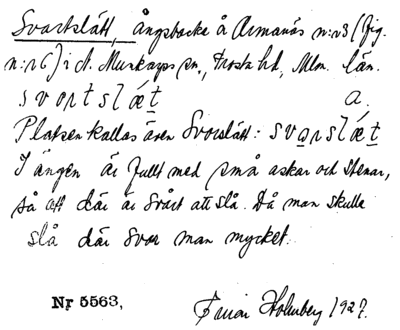 Svartslätt, ängsbacke å Armanäs n:r 3 (fig.
n:r 6) i A. Munkarps sn., Frosta hd, Mlm. län.
svɑrtslǽt a.
Platsen kallas även Svorslätt: svɑrslǽt
I ängen är fullt med små askar och stenar,
så att där är svårt att slå. Då man skulle
slå där svor man mycket.
Nr 5563,
Holmberg 1927.